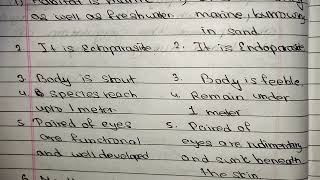 as well as freshwater. marine, burrowing
in sand.
2. It is Ectoparasite 2. It is Endoparasite
3. Body is stout 3. Body is feeble.
4. species reach 4. Remain under
upto 1 meter. 1 meter
5. Paired of eyes 5. Paired of
are functional eyes are rudimentary
and well developed and sunk beneath
the skin